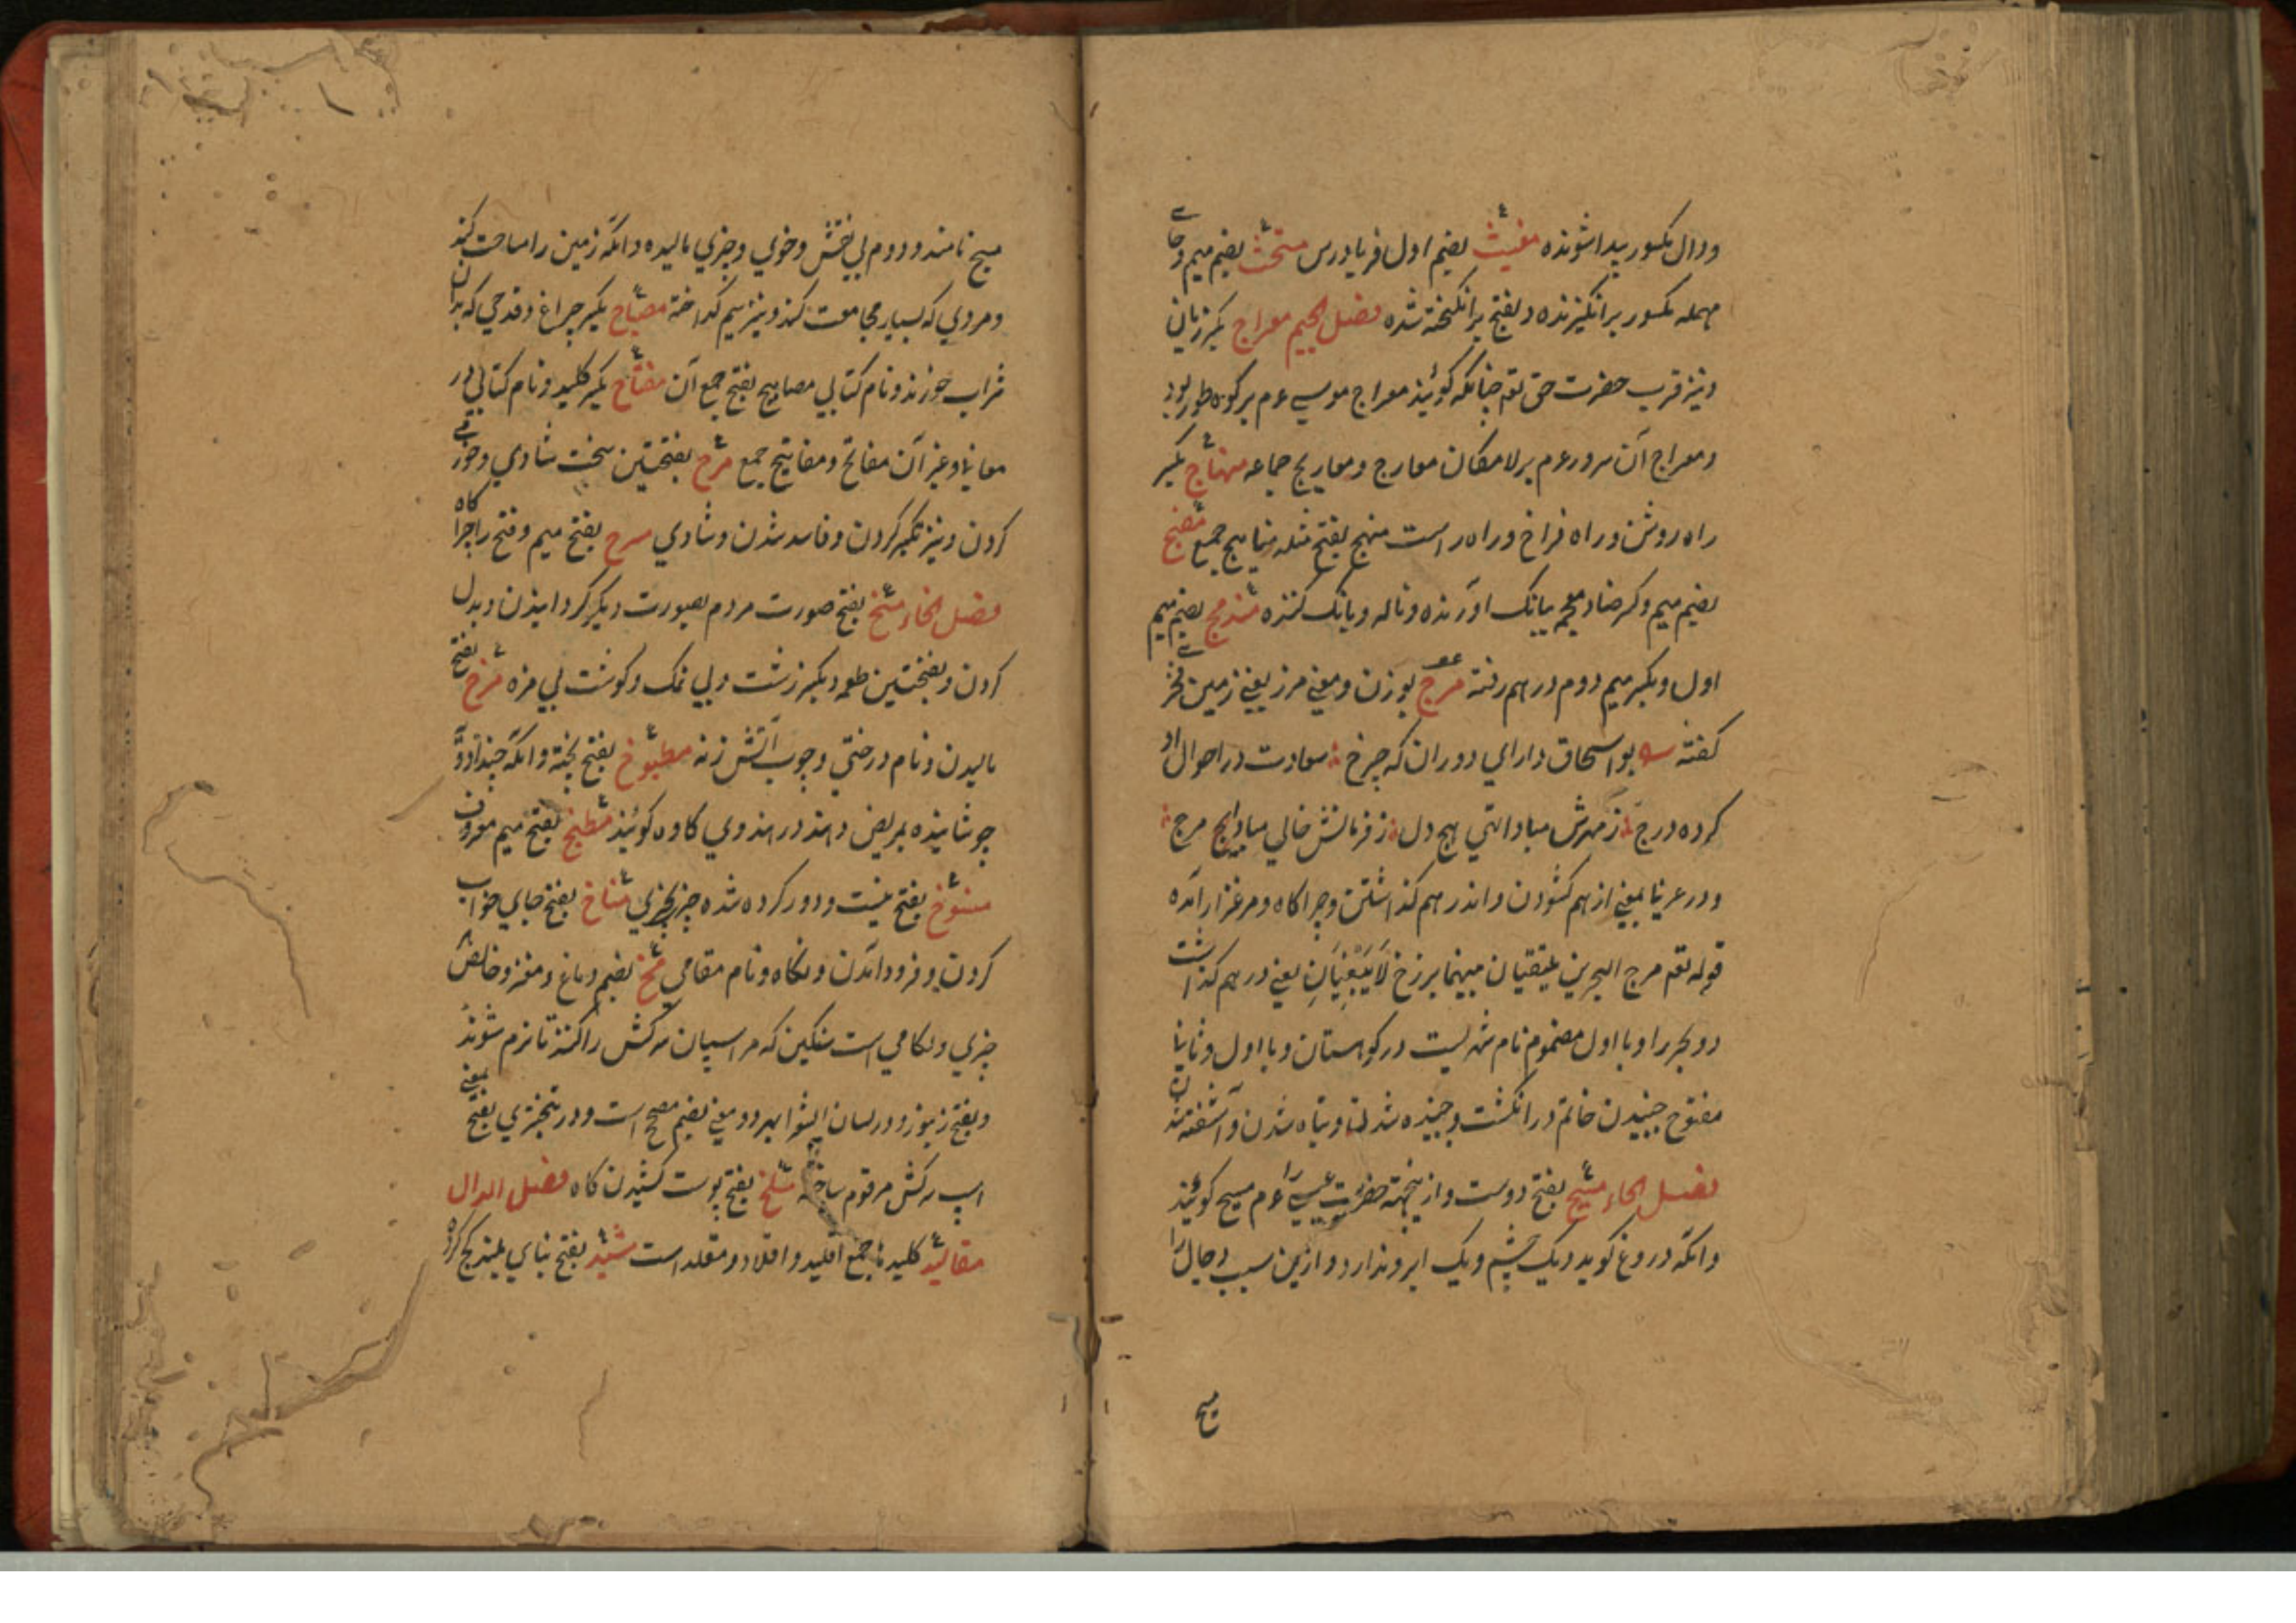 ودال مکسور پیدا شونده مغیث بضم اول فریادرس مستحث بضم میم وحای
مهمله مکسور برانگیزنده و بفتح برانگیخته شده فصل الجیم معراج بکسر نردبان
و نیز قرب حضرت حق تع چنانکه گویند معراج موسی عم بر کوه طور بود
و معراج آن سرور عم بر لامکان معارج و معاریج جماعه منهاج بکسر
راه روشن و راه فراخ و راه راست منهج بفتح مثله مناهج جمع مضج
بضم میم و کسر ضاد معجمه بانک آورنده و ناله و بانک کننده مندمج بضم میم
اول و بکسر میم دوم درهم رفته مرج بوزن و معنی مرز یعنی زمین فخری
گفته بو اسحاق دارای دوران که چرخ سعادت در احوال او
کرده درج ز مهرش مبادا تهی هیچ دل ز فرمانش خالی مبا هیچ مرج
و در عربی بمعنی از هم گشودن و اندر هم گذاشتن و چراگاه و مرغزار آمده
قوله تع مرج البحرین یلتقیان بینهما برزخ لا یبغیان یعنی درهم گذاشت
دو بحر را و با اول مضموم نام شهریست در کوهستان و با اول و ثانی
مفتوح جنبیدن خاتم در انگشت و جنبیده شدن و تباه شدن و آشفته شدن
فصل الحاء مسیح بفتح دوست و ازینجهة حضرت عیسی را عم مسیح گویند
و انکه دروغ گوید و یک چشم و یک ابرو ندارد و ازین سبب دجال را
مسیح
مسیح نامند و دوم بی نقش و خوی و چیزی مالیده و انکه زمین را مساحت کند
و مردی که بسیار مجامعت کند و نیز سیم گداخته مصباح بکسر چراغ و قدحی که بدان
شراب خورند و نام کتابی مصابیح بفتح جمع آن مفتاح بکسر کلید و نام کتابی در
معانی و غیر آن مفاتح و مفاتیح جمع مرح بفتحتین سخت شادی و خوشی
کردن و نیز تکبر کردن و فاسد شدن و شادی مسرح بفتح میم و فتح را چراگاه
فصل الخاء مسخ بفتح صورت مردم بصورت دیگر گردانیدن و بدل
کردن و بفتحتین طعمه و بکسر زشت و بی نمک و گوشت بی مزه مرخ بفتح
مالیدن و نام درختی و چوب آتش زنه مطبوخ بفتح پخته و انکه چند دارو
جوشانیده بمریض دهند در هندوی کاوه گویند مطبخ بفتح میم معروف
منسوخ بفتح نیست و دور کرده شده چیز بچیزی مناخ بفتح جای خواب
کردن و فرود آمدن و نگاه و نام مقامی مخ بضم دماغ و مغز و خالص
چیزی و لگامی است سنگین که مر اسپان سرکش را کنند تا نرم شوند
و بفتح زنبور و در لسان الشعرا بهر دو معنی بضم مصحح است و در تبختری بفتح بمعنی
اسپ سرکش مرقوم ساخته مسلخ بفتح پوست کشیدن گاه فصل الدال
مقالید کلیدها جمع اقلید و اقلاد و مقلد است مشید بفتح بنای بلند گچ کرده